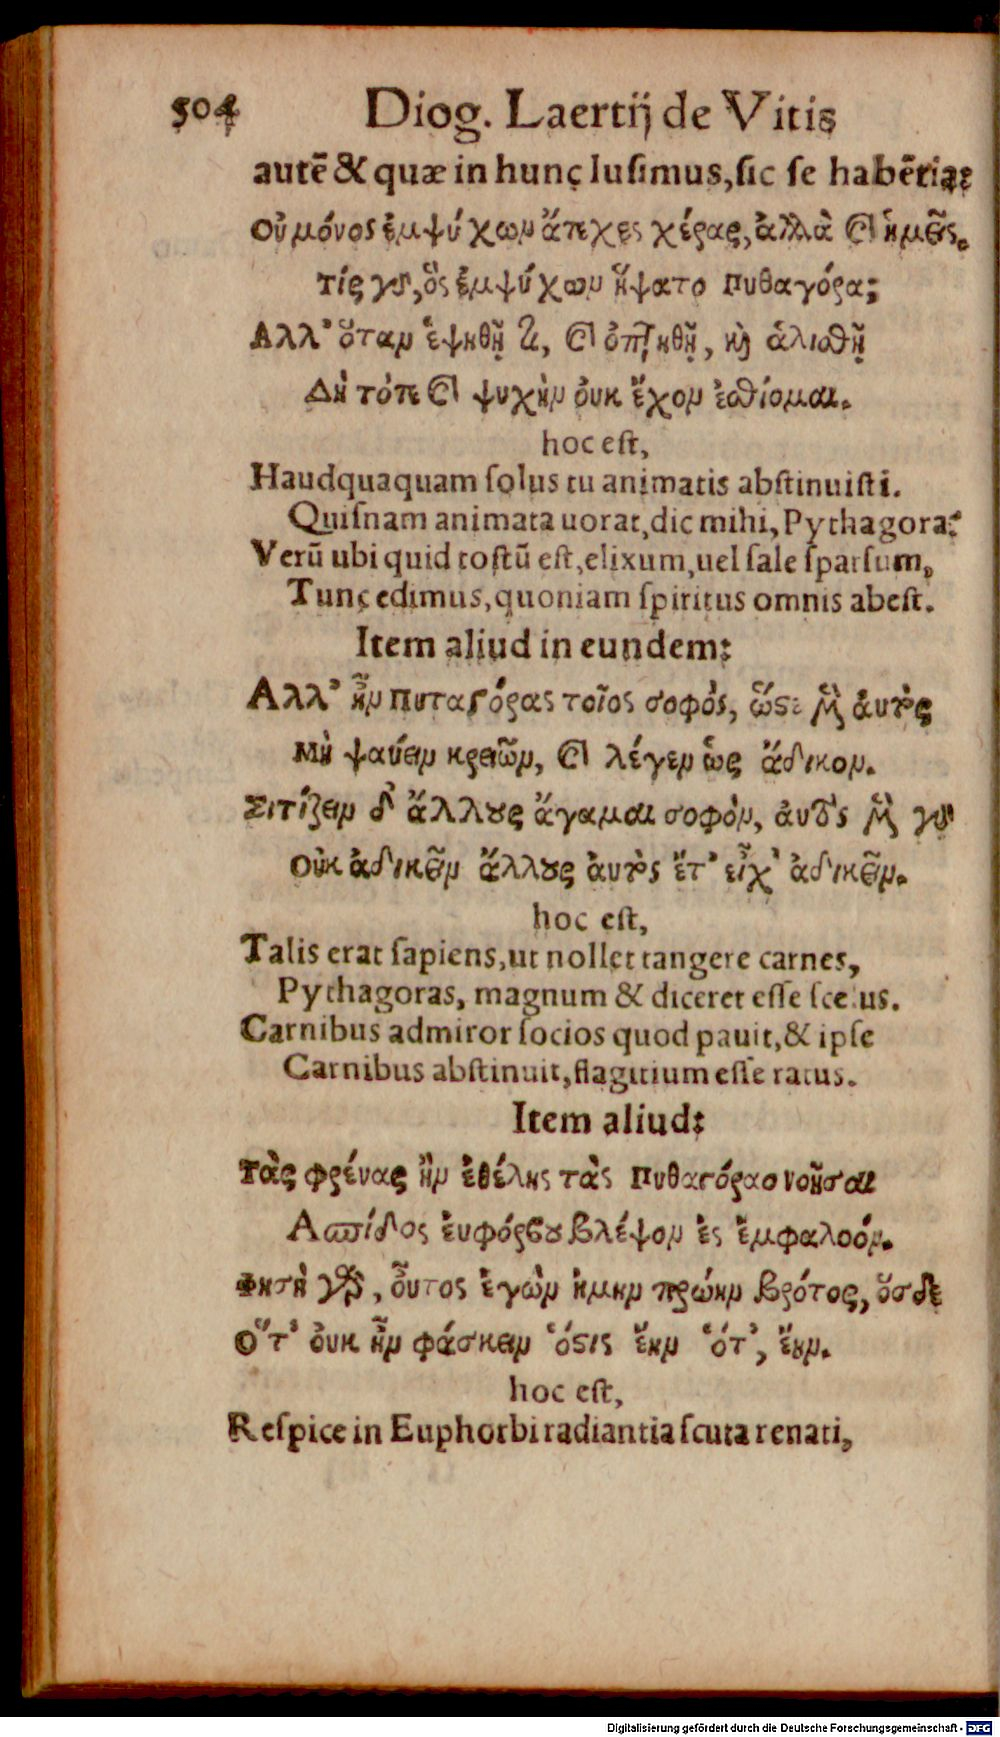 504 Diog. Laertij de Vitis
autē & quæ in hunc lusimus, sic se habētia:
Οὐ μόνος ἐμψύχων ἄπεχες χέρας, ἀλλὰ καὶ ἡμεῖς.
Τίς γὰρ, ὃς ἐμψύχων ἥψατο Πυθαγόρα;
Αλλ' ὅταν ἑψηθῇ τι, καὶ ὀπτηθῇ, κὴ ἁλισθῇ
Δὴ τότε καὶ ψυχὴν οὐκ ἔχον ἐσθίομαι.
hoc est,
Haudquaquam solus tu animatis abstinuisti.
Quisnam animata uorat, dic mihi, Pythagora?
Verū ubi quid tostū est, elixum, uel sale sparsum,
Tunc edimus, quoniam spiritus omnis abest.
Item aliud in eundem:
Αλλ' ἦν Πυταγόρας τοῖος σοφός, ὥστε μὴ ἀυτὸς
Μὴ ψαύειν κρειῶν, καὶ λέγεν ὡς ἄδικον.
Σιτίζειν δ' ἄλλους ἄγαμαι σοφόν, ἀυτὸς μὴ γὰρ
Οὐκ ἀδικεῖν ἄλλους ἀυτὸς ἔτ' εἶχ' ἀδικεῖν.
hoc est,
Talis erat sapiens, ut nollet tangere carnes,
Pythagoras, magnum & diceret esse scelus.
Carnibus admiror socios quod pauit, & ipse
Carnibus abstinuit, flagitium esse ratus.
Item aliud:
Τὰς φρένας ἢν ἐθέλης τὰς Πυθαγόραο νοῆσαι
Ασπίδος ἐυφόρβου βλέψον ἐς ἐμφαλοόν.
Φησὴ γὰρ, οὗτος ἐγὼν ἠμην πρώην βρότος, ὅσδε
Ὅτ' οὐκ ἦν φάσκειν ὅστις ἔην ὅτ', ἔην.
hoc est,
Respice in Euphorbi radiantia scuta renati,
Digitalisierung gefördert durch die Deutsche Forschungsgemeinschaft - DFG